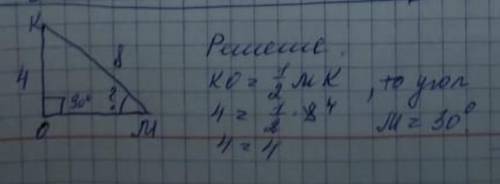 K
8
4
90°
?
O
M
Решение.
KO = 1/2 MK, то угол
4 = 1/2 · 8 4
M = 30°
4 = 4